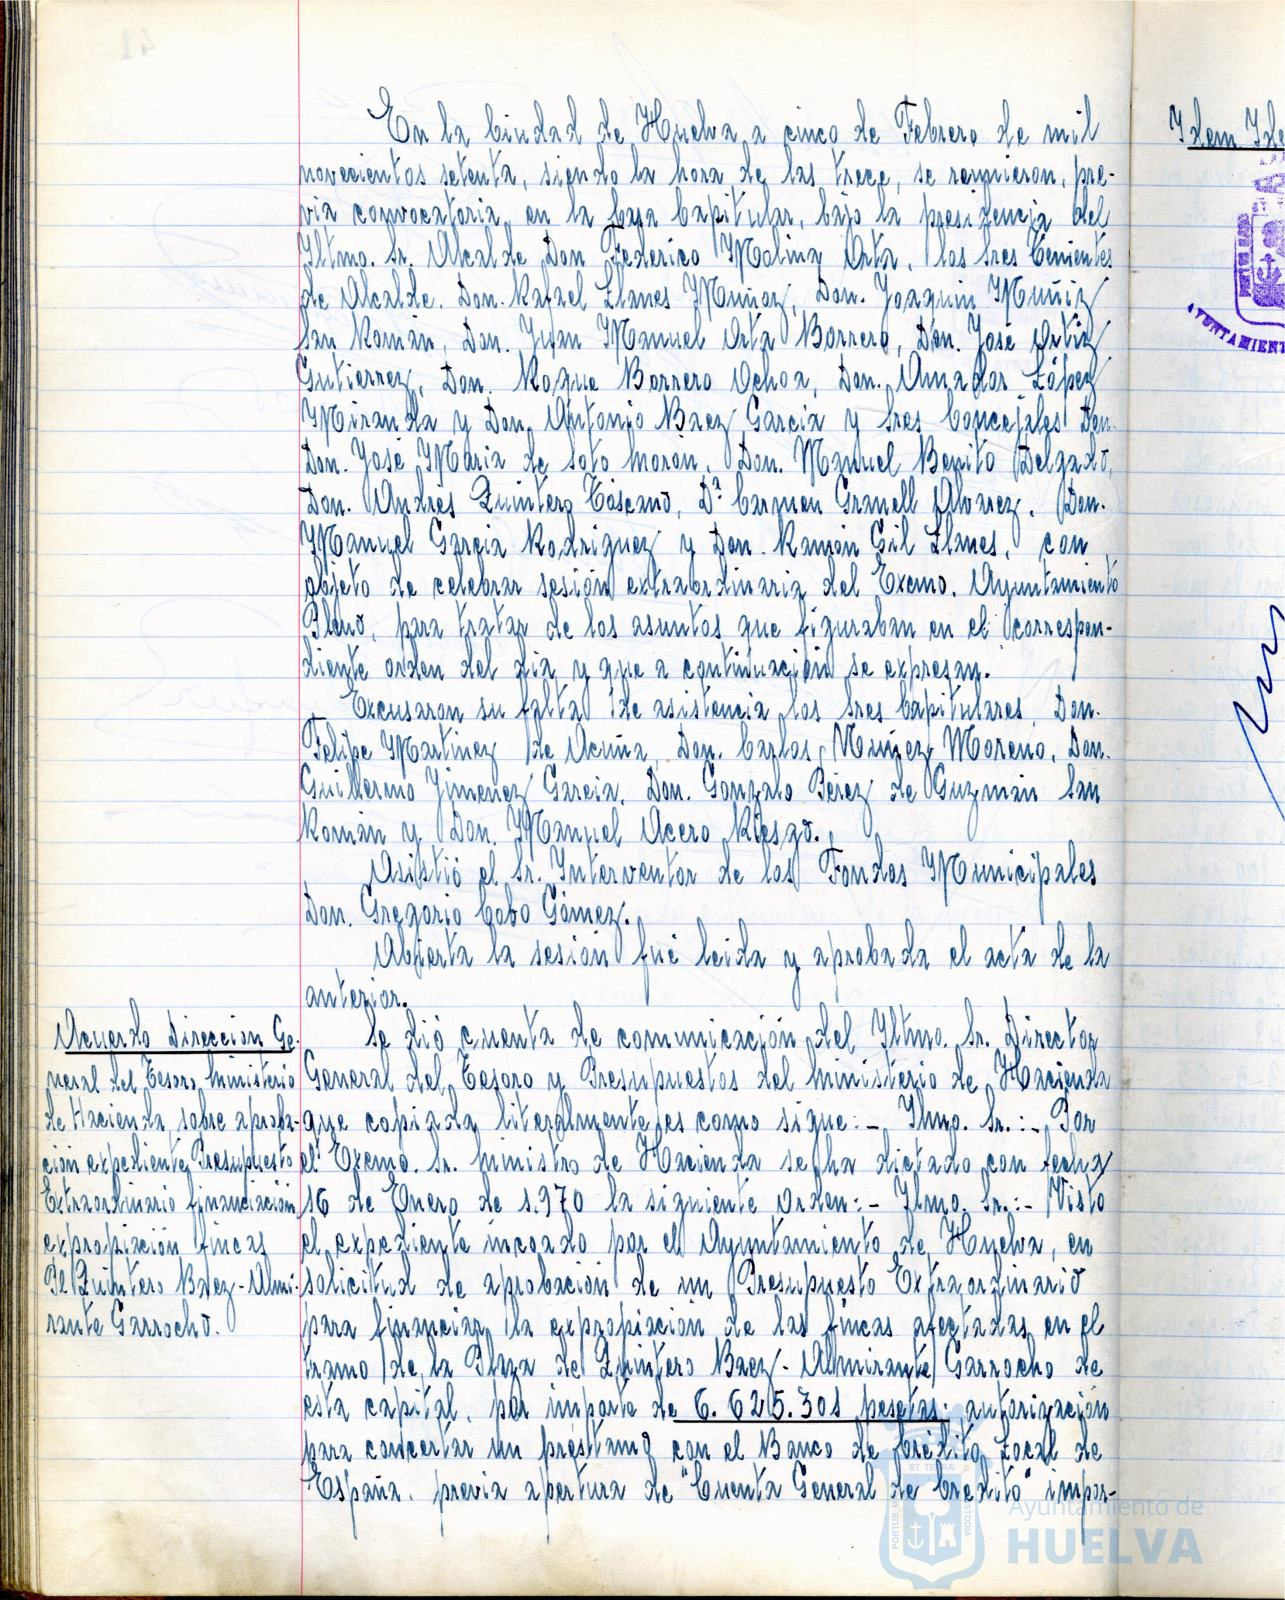 En la Ciudad de Huelva a cinco de Febrero de mil
novecientos setenta, siendo la hora de las trece, se reunieron, pre-
via convocatoria, en la Casa Capitular, bajo la presidencia del
Iltmo. Sr. Alcalde Don Federico Molina Orta, los Sres Tenientes
de Alcalde, Don. Rafael Llanes Muñoz, Don. Joaquin Muñiz
San Román, Don. Juan Manuel Orta Borrero, Don. José Ortiz
Gutierrez, Don. Roque Borrero Ochoa, Don. Amador López
Miranda y Don. Antonio Baez Garcia y Sres Concejales Don.
Don. José Maria de Soto Morón, Don. Manuel Benito Delgado,
Don. Andrés Quintero Toscano, Dª Carmen Granell Alvarez, Don.
Manuel Garcia Rodriguez y Don. Ramón Gil Llanes, con
objeto de celebrar sesión extraordinaria del Excmo. Ayuntamiento
Pleno, para tratar de los asuntos que figuraban en el correspon-
diente orden del dia y que a continuación se expresan.
Excusaron su falta de asistencia los Sres Capitulares, Don.
Felipe Martinez de Acuña, Don. Carlos Nuñez Moreno, Don.
Guillermo Jimenez Garcia, Don. Gonzalo Pérez de Guzmán San
Román y Don. Manuel Acero Riesgo.
Asistió el Sr. Interventor de los Fondos Municipales
Don. Gregorio Cobo Gómez.
Abierta la sesión fué leida y aprobada el acta de la
anterior.
Acuerdo Direccion Ge-
neral del Tesoro, Ministerio
de Hacienda, sobre aproba-
ción expediente Presupuesto
Extraordinario financiación
expropiación fincas
Pl Quintero Baez-Almi-
rante Garrocho.
Se dió cuenta de comunicación del Iltmo. Sr. Director
General del Tesoro y Presupuestos del Ministerio de Hacienda
que copiada literalmente, es como sigue:- Ilmo. Sr.:- Por
el Excmo. Sr. Ministro de Hacienda se ha dictado con fecha
16 de Enero de 1.970 la siguiente Orden:- Ilmo. Sr.:- Visto
el expediente incoado por el Ayuntamiento de Huelva, en
solicitud de aprobación de un Presupuesto Extraordinario
para financiar la expropiación de las fincas afectadas en el
tramo de la Plaza de Quintero Baez-Almirante Garrocho de
esta capital, por importe de 6.625.301 pesetas; autorización
para concertar un préstamo con el Banco de Crédito Local de
España, previa apertura de "Cuenta General de Credito" impor-
Idem Ide
AYUNTAMIENT
Ayuntamiento de
HUELVA